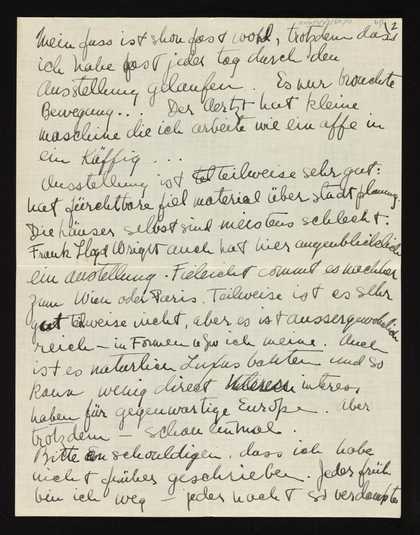 2
Mein fuss ist shon fast wohl, trotzdem dass
ich habe fast jeder tag durch den
Ausstellung gelaufen. Es nur brauchte
Bewegung... Der Aertzt hat kleine
maschine die ich arbeite wie ein affe in
ein Käffig ...
Ausstellung ist teilweise sehr gut:
hat fürchtbare fiel material über stadt planung.
Die häuser selbst sind meistens schlecht.
Frank Lloyd Wright auch hat hier augenblicklich
ein austellung. Fieleicht commt es nachher
zum Wien oder Paris. Teilweise ist es sehr
gut teilweise nicht, aber es ist aussergewohnlich
reich – in Formen u.s.w ich meine. Auch
ist es naturlich Luxus bauten und so
kann wenig direct interes
haben für gegenwartige Europe. Aber
trotzdem – schon einmal.
Bitte enschouldigen, dass ich habe
nicht früher geschrieben. Jeder früh
bin ich weg – jeder nacht so verdampte